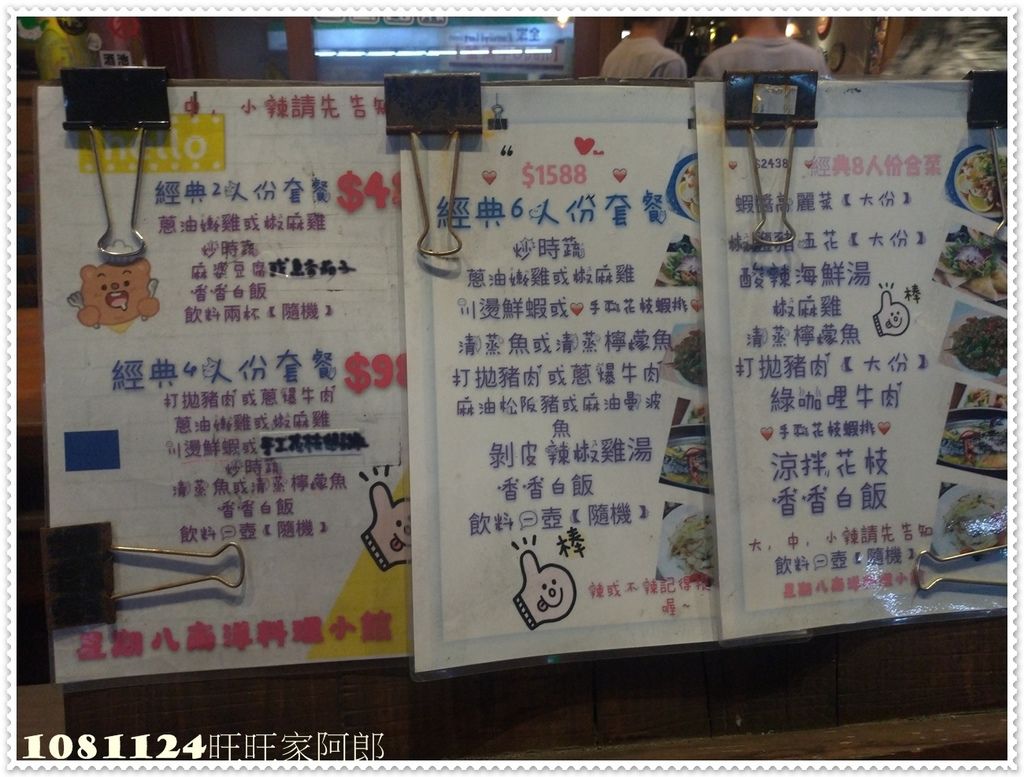 中, 小辣請先告知
hello
經典2人份套餐 $4
蔥油嫩雞或椒麻雞
炒時蔬
麻婆豆腐或魚香茄子
香香白飯
飲料兩杯【隨機】
經典4人份套餐 $9
打拋豬肉或蔥爆牛肉
蔥油嫩雞或椒麻雞
川燙鮮蝦或
炒時蔬
清蒸魚或清蒸檸檬魚
香香白飯
飲料一壺【隨機】
星期八南洋料理小館
$1588
經典6人份套餐
炒時蔬
蔥油嫩雞或椒麻雞
川燙鮮蝦或手工花枝蝦排
清蒸魚或清蒸檸檬魚
打拋豬肉或蔥爆牛肉
麻油松阪豬或麻油虱波
魚
剝皮辣椒雞湯
香香白飯
飲料一壺【隨機】
棒
辣或不辣記得
喔~
$2438 經典8人份合菜
蝦醬高麗菜【大份】
椒鹽豬五花【大份】
酸辣海鮮湯
椒麻雞
棒
清蒸檸檬魚
打拋豬肉【大份】
綠咖哩牛肉
手工花枝蝦排
涼拌花枝
香香白飯
大, 中, 小辣請先告知
飲料一壺【隨機】
星期八南洋料理小
1081124旺旺家阿郎